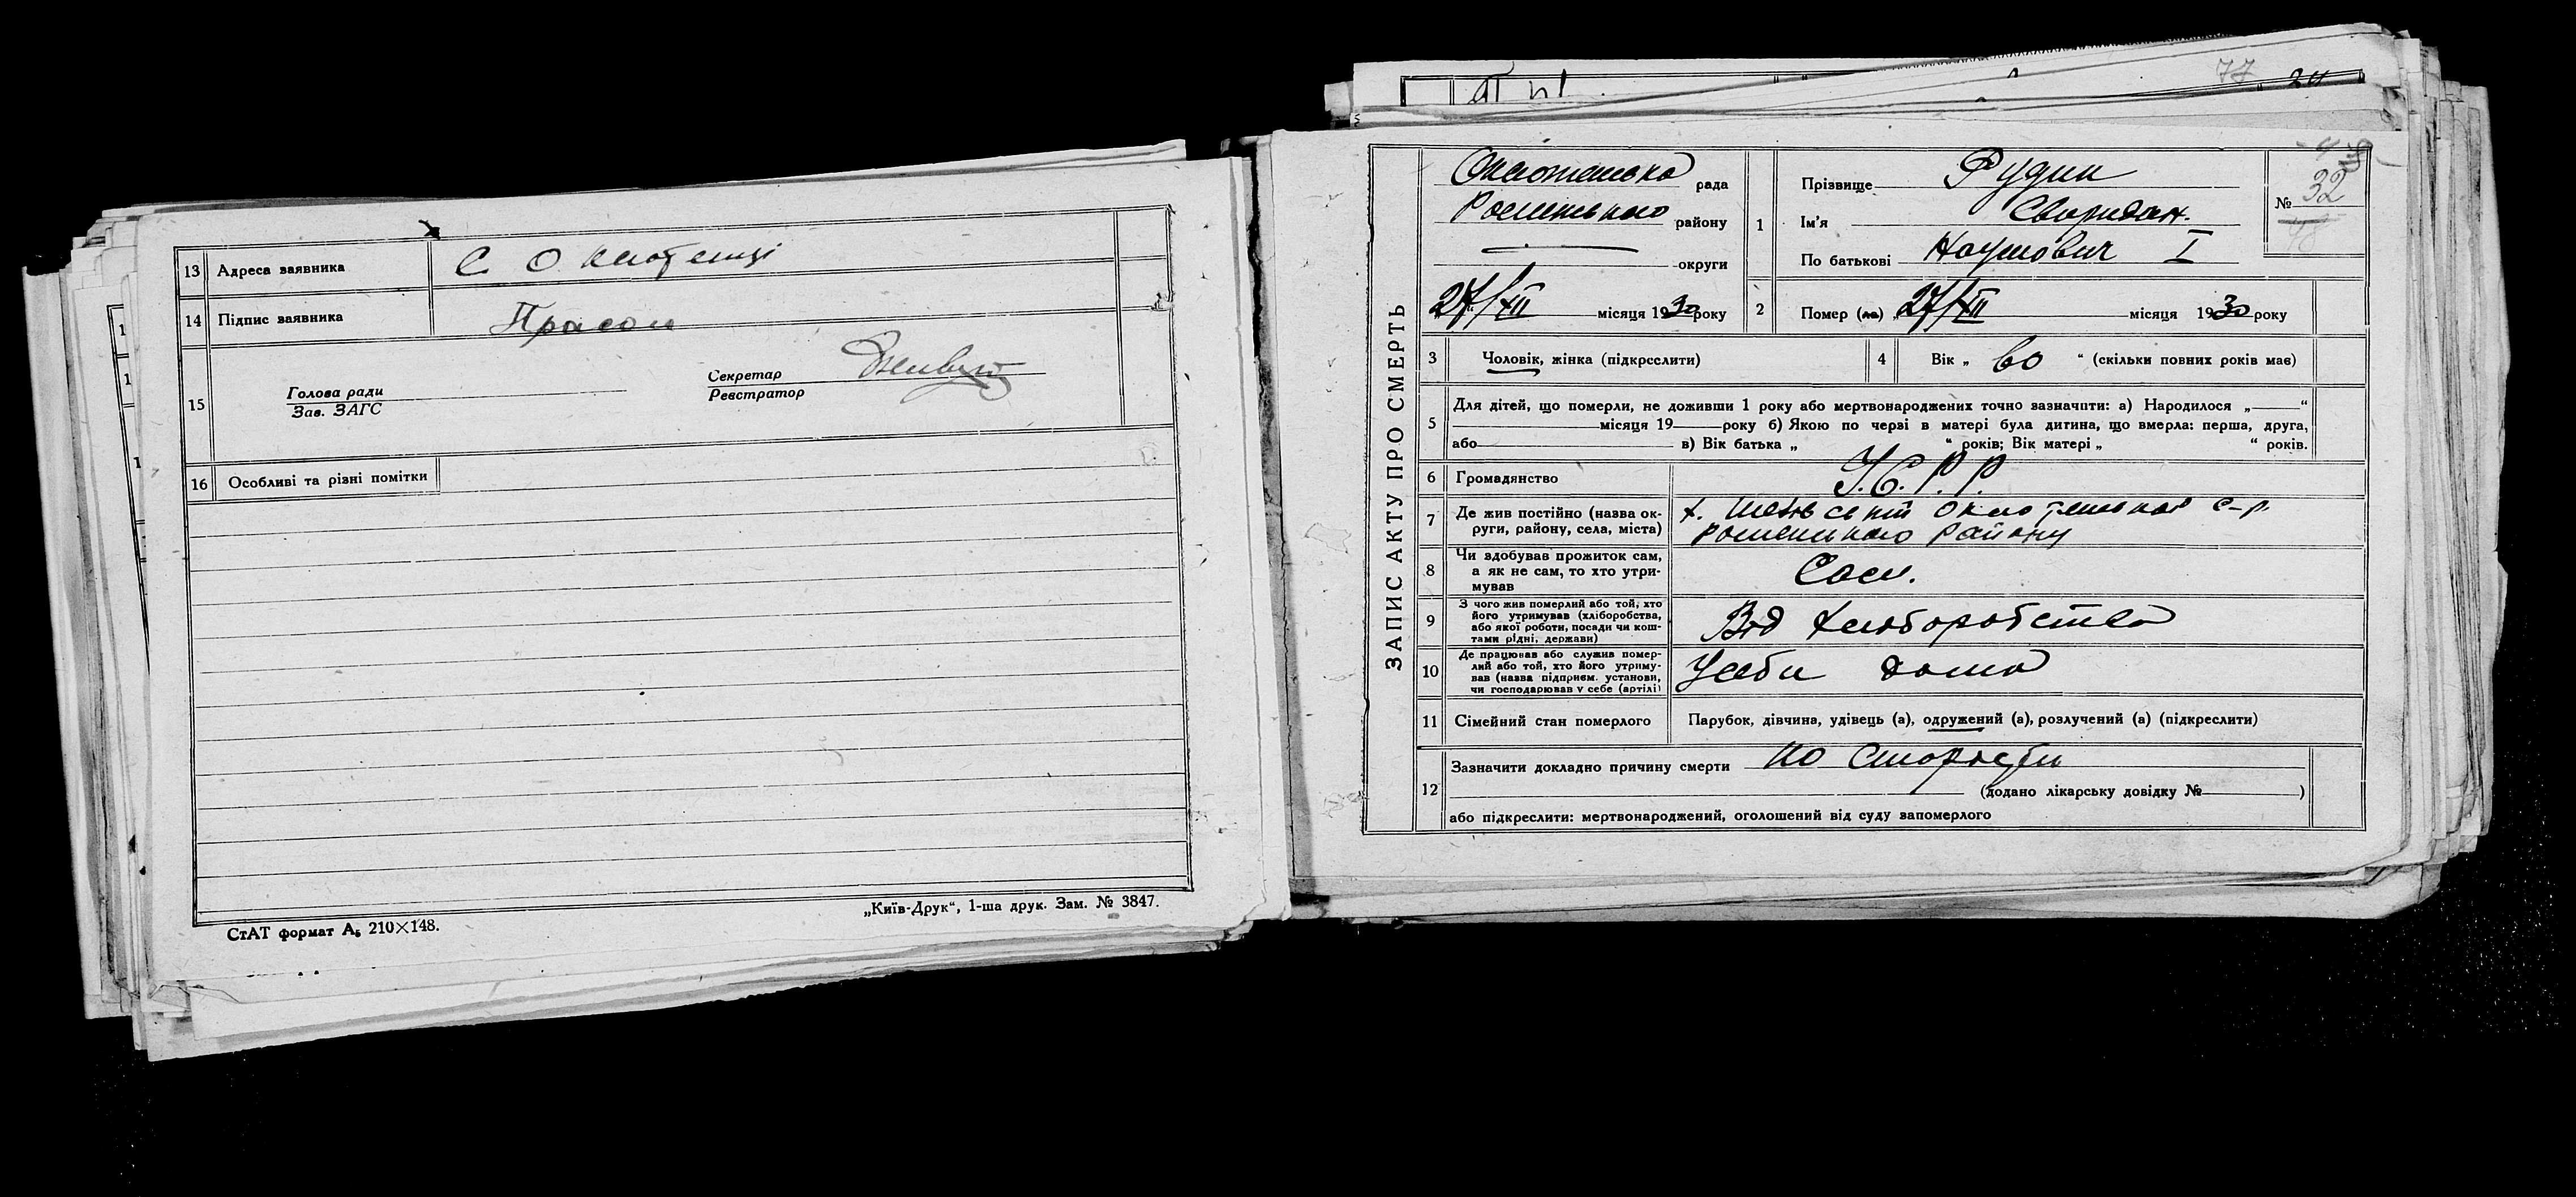 13 Адреса заявника С.
14 Підпис заявника Прасол
15 Голова ради
Зав. ЗАГС
Секретар
Реєстратор
16 Особливі та різні помітки
СтАТ формат А₅ 210×148.
„Київ-Друк“, 1-ша друк. Зам. № 3847.
77
ЗАПИС АКТУ ПРО СМЕРТЬ
рада
району
округи
27/XII місяця 1930 року
1 Прізвище Рудик
Ім'я Свиридон.
По батькові Наумович I
№ 32
2 Помер (ла) „27/XII місяця 1930 року
3 Чоловік, жінка (підкреслити)
4 Вік „ 60 “ (скільки повних років має)
5 Для дітей, що померли, не доживши 1 року або мертвонароджених точно зазначити: а) Народилося „ “
місяця 19 року б) Якою по черзі в матері була дитина, що вмерла: перша, друга,
або в) Вік батька „ “ років; Вік матері „ “ років.
6 Громадянство У.С.Р.Р.
7 Де жив постійно (назва ок-
руги, району, села, міста) х. с-р.
району
8 Чи здобував прожиток сам,
а як не сам, то хто утри-
мував Сам.
9 З чого жив померлий або той, хто
його утримував (хліборобства,
або якої роботи, посади чи кош-
тами рідні, держави) Від хліборобства
10 Де працював або служив помер-
лий або той, хто його утриму-
вав (назва підприєм. установи,
чи господарював у себе (артілі) Усеби дома
11 Сімейний стан померлого Парубок, дівчина, удівець (а), одружений (а), розлучений (а) (підкреслити)
12 Зазначити докладно причину смерти по старости
(додано лікарську довідку № )
або підкреслити: мертвонароджений, оголошений від суду запомерлого